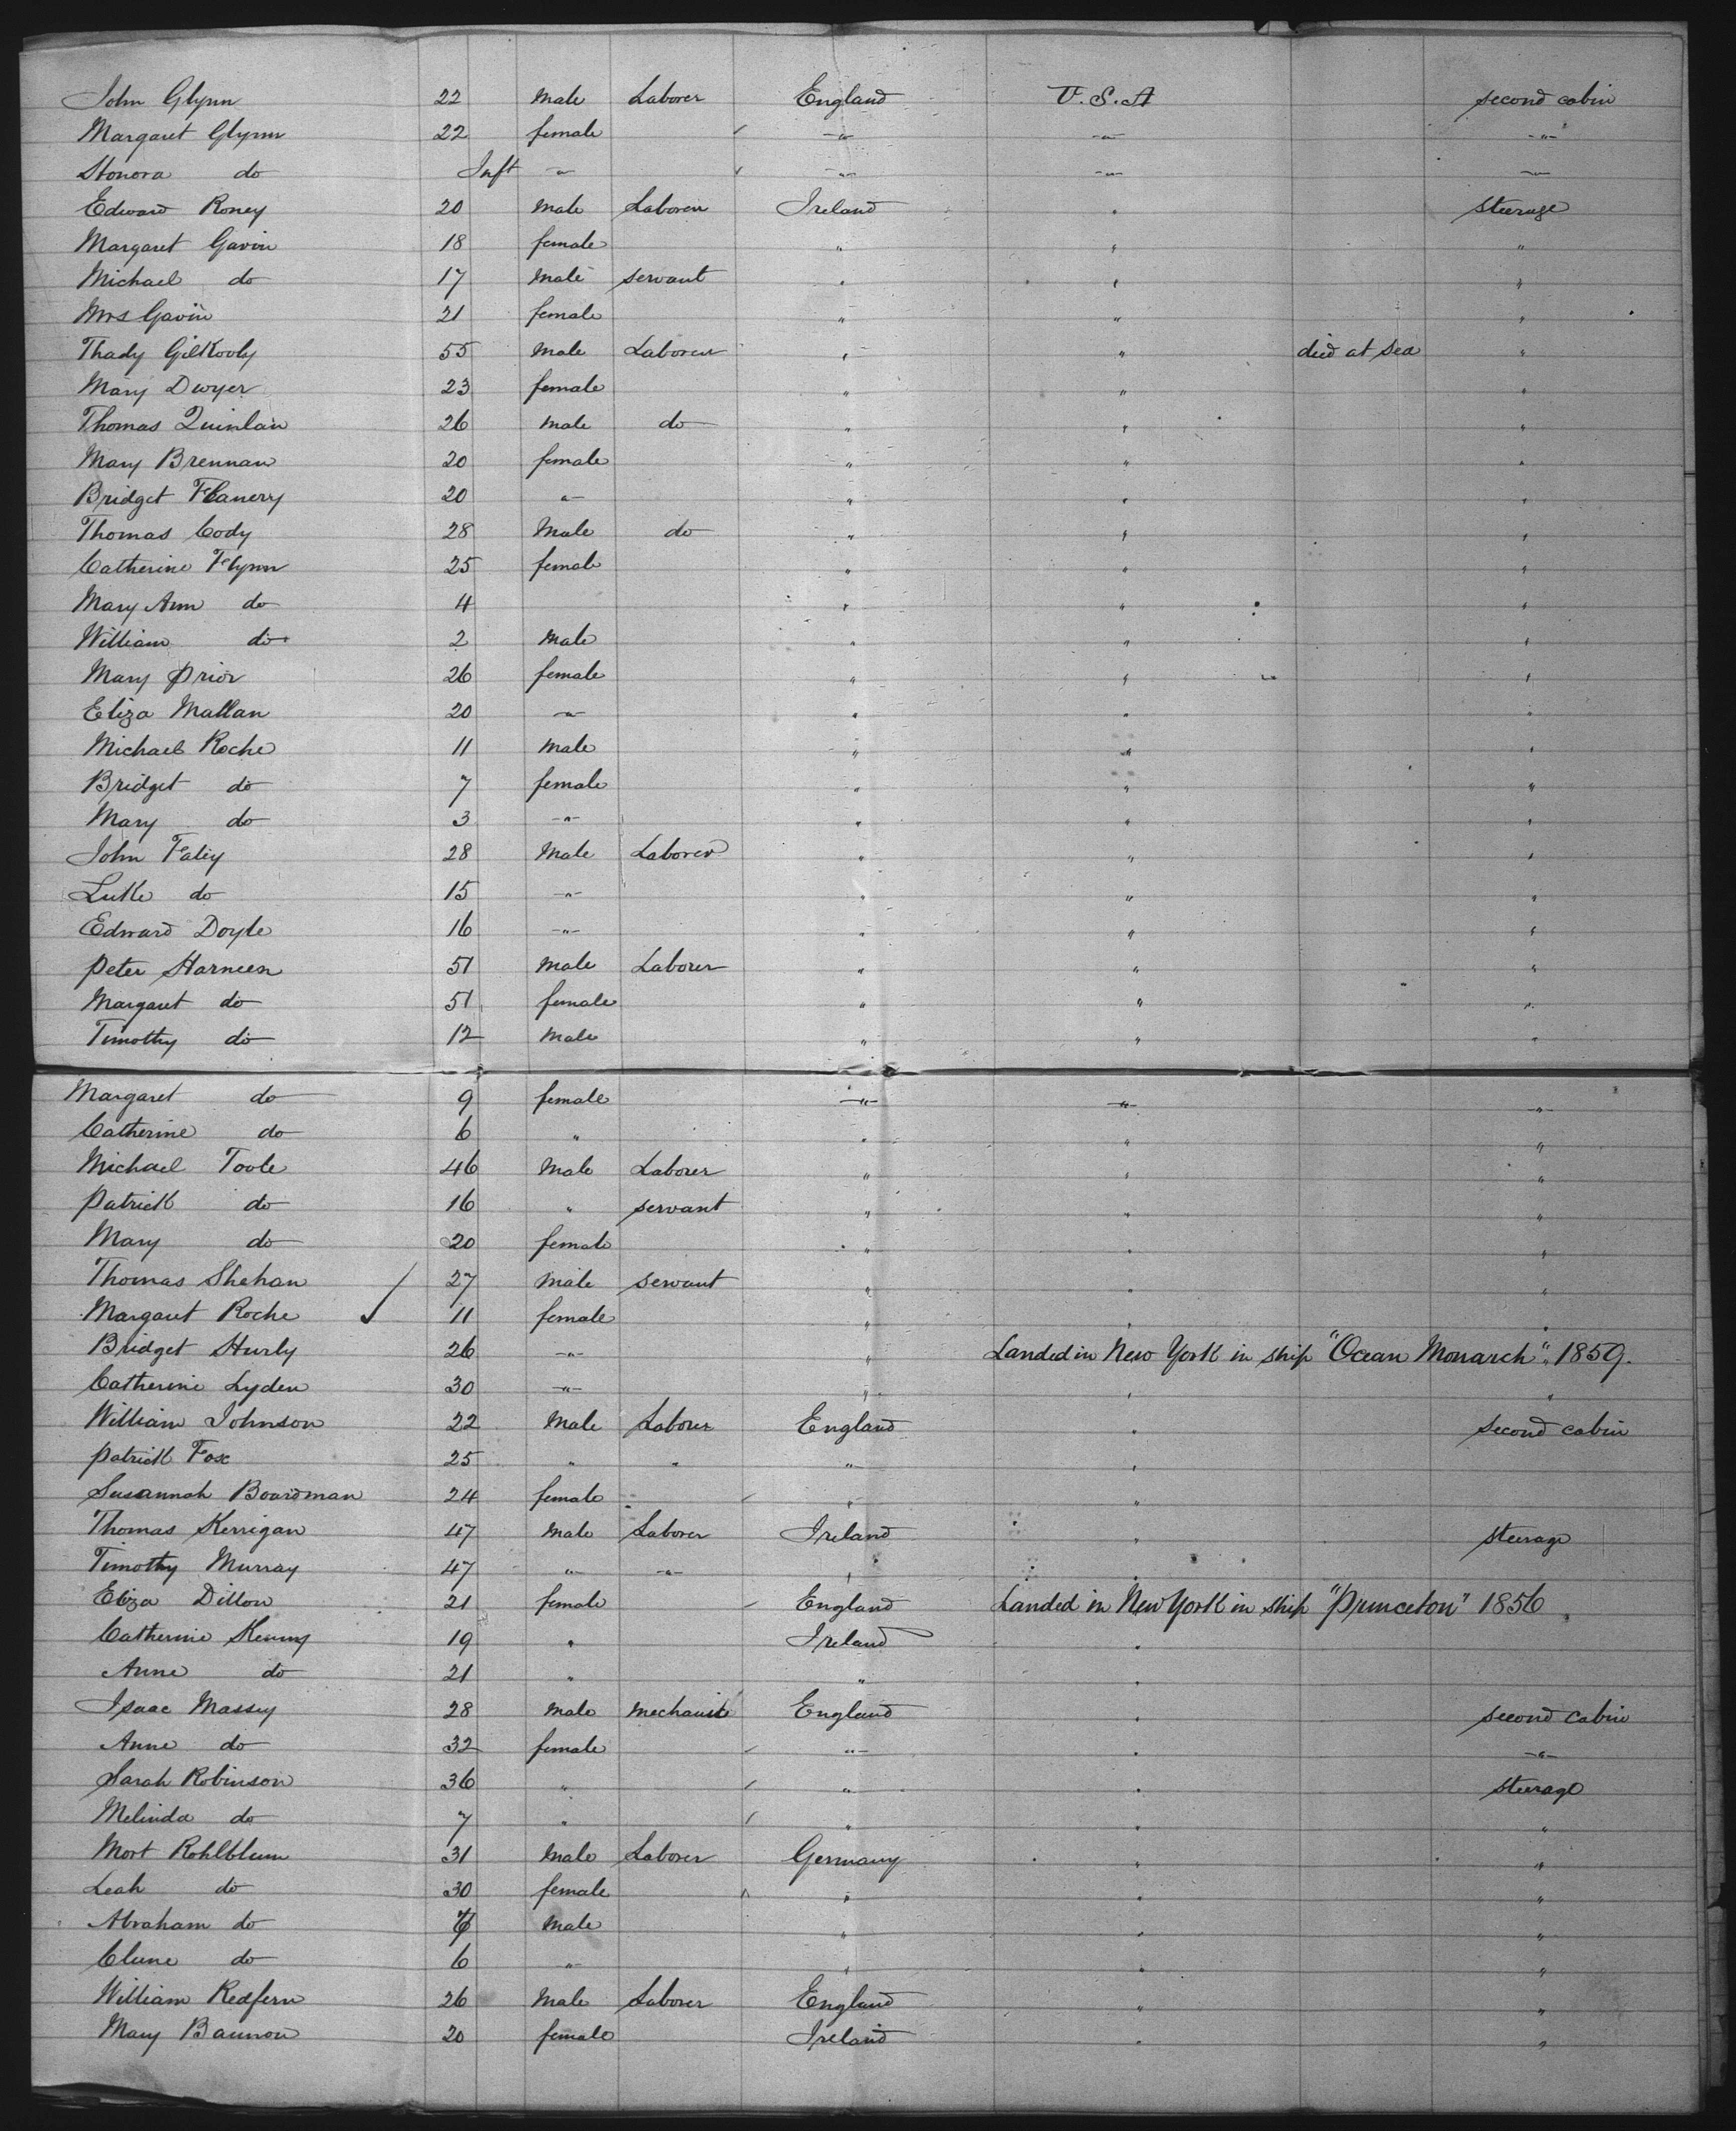 John Glynn 22 Male Laborer England U.S.A second cabin
Margaret Glynn 22 female -"- -"- -"-
Honora do Inft -"- -"- -"- -"-
Edward Roney 20 Male Laborer Ireland " steerage
Margaret Gavin 18 female " " "
Michael do 17 Male servant " " "
Mrs Gavin 21 female " " "
Thady Gilkooly 55 Male Laborer " " died at sea "
Mary Dwyer 23 female " " "
Thomas Quinlan 26 Male do " " "
Mary Brennan 20 female " " "
Bridget Flanery 20 -"- " " "
Thomas Cody 28 Male do " " "
Catherine Flynn 25 female " " "
Mary Ann do 4 " " "
William do 2 Male " " "
Mary Prior 26 female " " "
Eliza Mallan 20 -"- " " "
Michael Roche 11 Male " " "
Bridget do 7 female " " "
Mary do 3 -"- " " "
John Faley 28 Male Laborer " " "
Luke do 15 -"- " " "
Edward Doyle 16 -"- " " "
Peter Harneen 51 Male Laborer " " "
Margaret do 51 female " " "
Timothy do 12 Male " " "
Margaret do 9 female -"- -"- -"-
Catherine do 6 " " " "
Michael Toole 46 Male Laborer " " "
Patrick do 16 " servant " " "
Mary do 20 female " " "
Thomas Shehan 27 Male servant " " "
Margaret Roche 11 female " " "
Bridget Hurly 26 -"- " Landed in New York in ship "Ocean Monarch" 1859.
Catherine Lyden 30 -"- " " "
William Johnson 22 Male Laborer England " second cabin
Patrick Fox 25 " " -"- "
Susannah Boardman 24 female " "
Thomas Kerrigan 47 Male Laborer Ireland " steerage
Timothy Murray 47 -"- -"- " "
Eliza Dillon 21 female England Landed in New York in ship "Princeton" 1856
Catherine Kenny 19 " Ireland "
Anne do 21 " " "
Isaac Massey 28 Male Mechanic England " second cabin
Anne do 32 female -"- " -"-
Sarah Robinson 36 " " " steerage
Melinda do 7 " " " "
Mort Rohlblum 31 Male Laborer Germany " "
Leah do 30 female " " "
Abraham do Male " " "
Clune do 6 -"- " " "
William Redfern 26 Male Laborer England " "
Mary Bannon 20 female Ireland " "